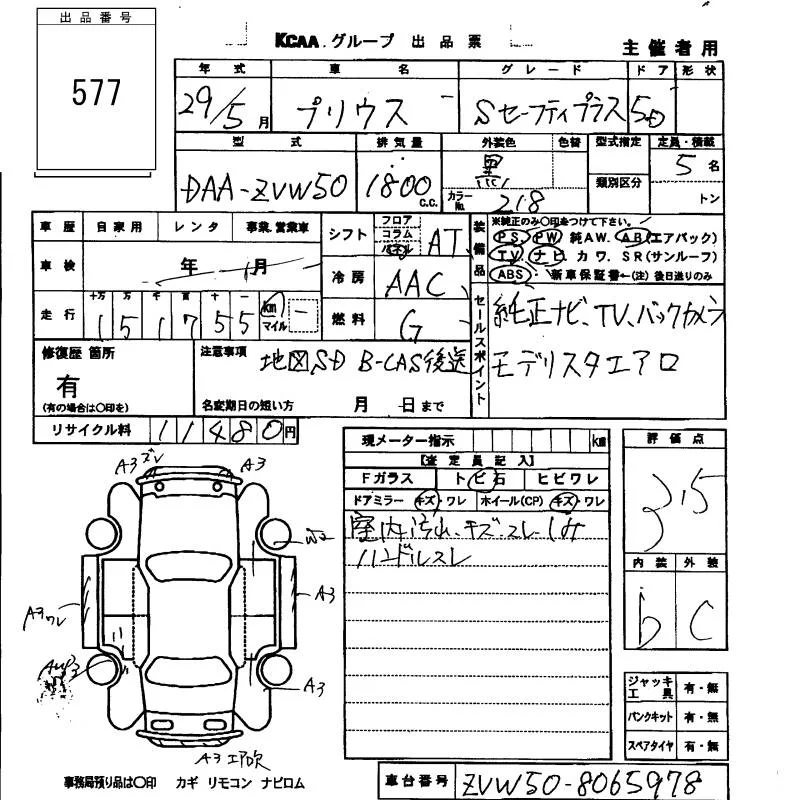 出品番号
577
KCAA.グループ 出品票
主催者用
年式 車名 グレード ドア 形状
29/5月 プリウス Sセーフティプラス 5D
型式 排気量 外装色 色替 型式指定 定員・積載
DAA-ZVW50 1800 c.c. 黒 類別区分 5名
カラーNo. 218 トン
車歴 自家用 レンタ 事業、営業車
シフト フロア コラム パネル AT
装備品 ※純正のみ〇印をつけて下さい。
PS. PW 純AW. AB(エアバック)
TV. ナビ カワ. SR(サンルーフ)
ABS 新車保証書←(注)後日送りのみ
車検 年 月
冷房 AAC
走行 十万 万 千 百 十 一
151755 km マイル
燃料 G
セールスポイント 純正ナビ、TV、バックカメラ
モデリスタエアロ
修復歴 箇所
有
(有の場合は〇印を)
注意事項 地図SD B-CAS後送
名変期日の短い方 月 日まで
リサイクル料 11480円
現メーター指示 km
【査定員記入】
Fガラス トビ石 ヒビワレ
ドアミラー キズ・ワレ ホイール(CP) キズ・ワレ
室内汚れ、キズ・スレ・しみ
ハンドルスレ
評価点
3.5
内装 外装
b C
A3ズレ A3
A3ワレ A3
A3
A3
ジャッキ工具 有・無
パンクキット 有・無
スペアタイヤ 有・無
事務局預り品は〇印 カギ リモコン ナビロム
車台番号 ZVW50-8065978